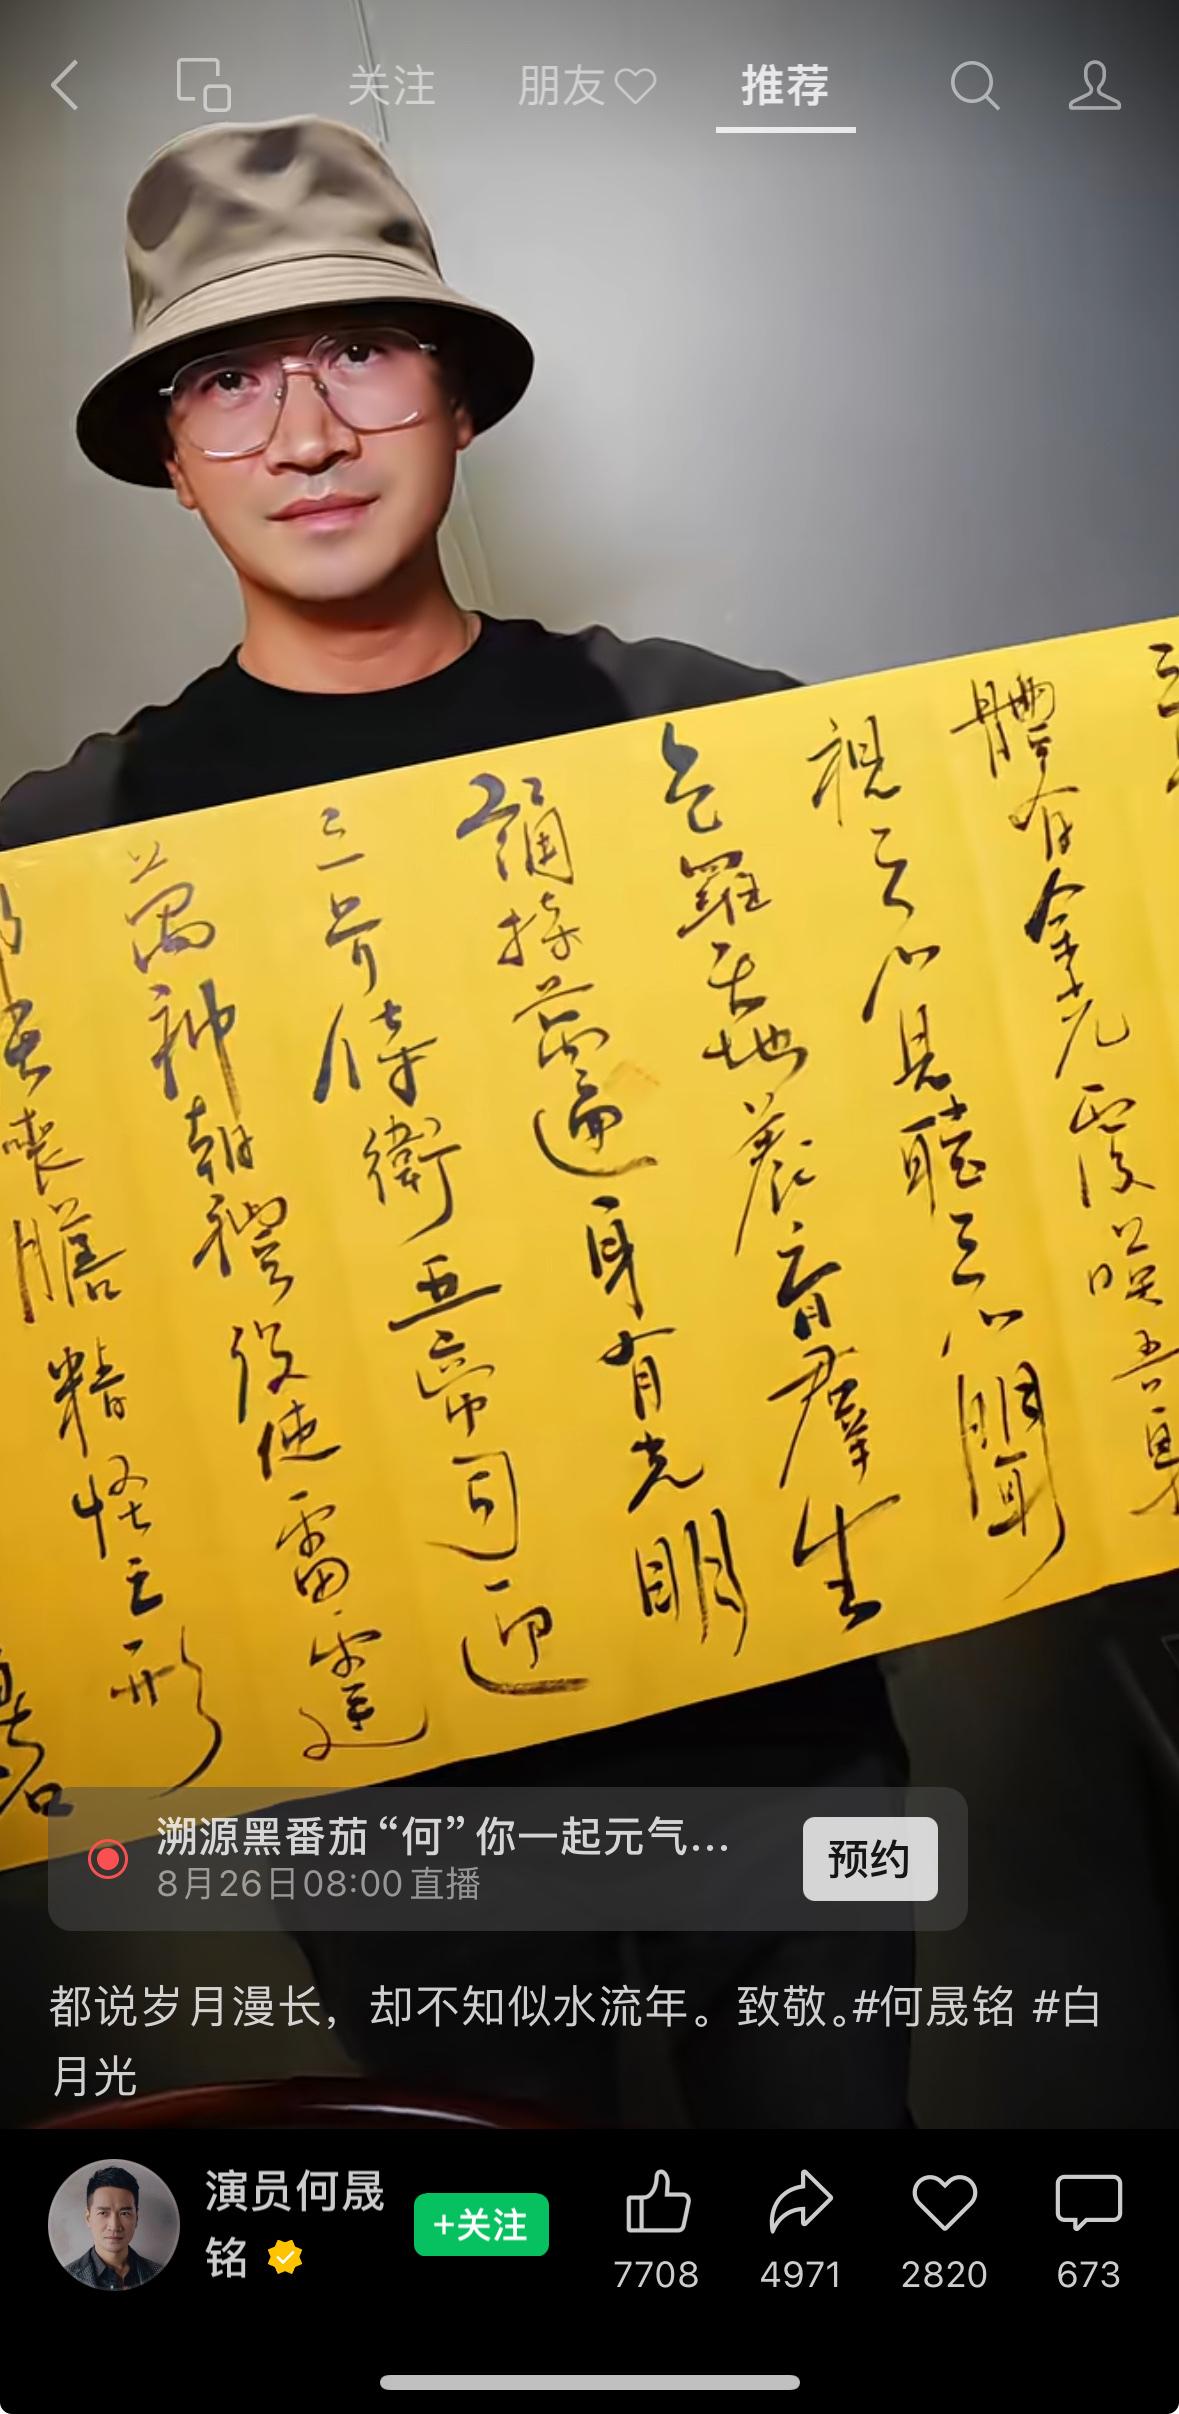 关注
朋友
推荐
體有金光覆映吾身
視之不見聽之不聞
包羅天地養育群生
誦持萬遍身有光明
三界侍衛五帝司迎
萬神朝禮役使雷霆
喪膽精怪亡形
溯源黑番茄“何”你一起元气...
8月26日08:00直播
预约
都说岁月漫长，却不知似水流年。致敬。#何晟铭 #白
月光
演员何晟
铭
+关注
7708
4971
2820
673